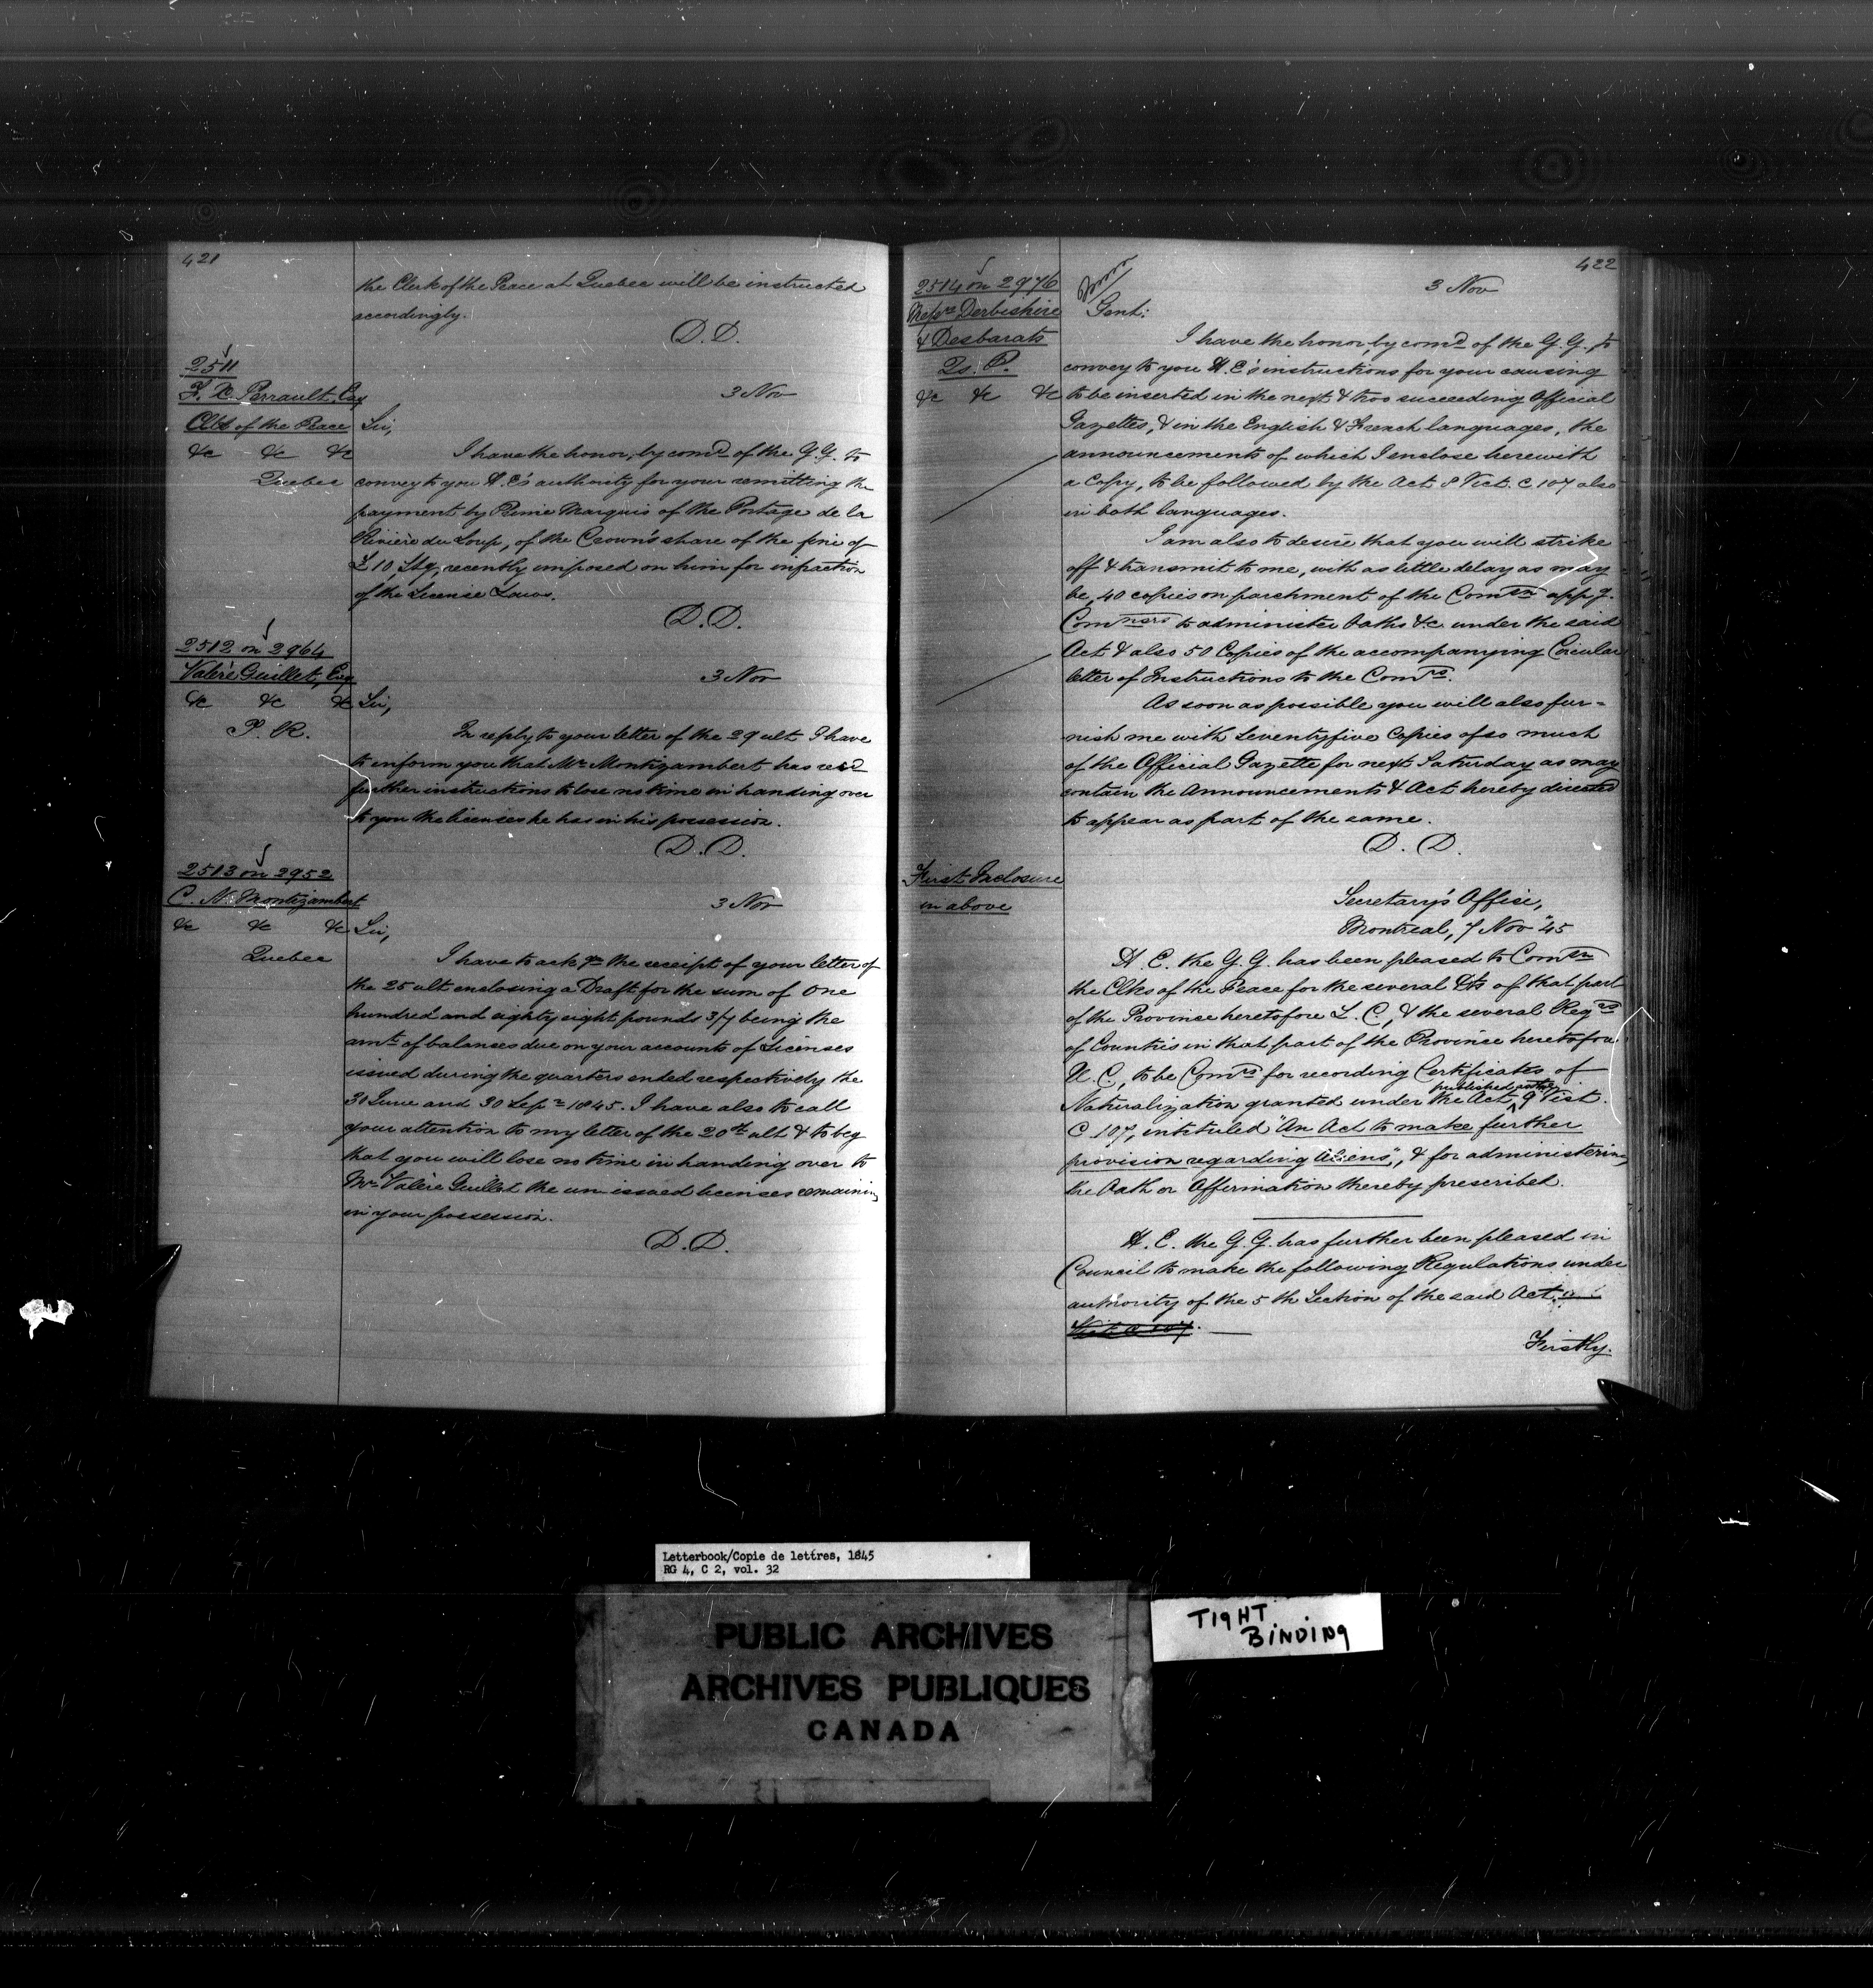 421
the Clerk of the Peace at Quebec will be instructed
accordingly.
D.D.
2511
F. X. Perrault, Esq
Clk of the Peace
&c &c &c
Quebec
3 Nov
Sir,
I have the honor, by comd of the G.G. to
convey to you H.E's authority for your remitting the
payment by Marquis of the Portage de la
Rivière du Loup, of the Crown's share of the fine of
£10, Stg, recently imposed on him for infraction
of the License Laws.
D.D.
2512 on 2964
Valère Guillet, Esq
&c &c &c
T. R.
3 Nov
Sir,
In reply to your letter of the 29 ult I have
to inform you that Mr Montizambert has recd
further instructions to lose no time in handing over
to you the licenses he has in his possession.
D.D.
2513 on 2952
C. N. Montizambert
&c &c &c
Quebec
3 Nov
Sir,
I have to ackge the receipt of your letter of
the 25 ult enclosing a Draft for the sum of One
hundred and eighty eight pounds 3/7 being the
amt of balances due on your accounts of Licenses
issued during the quarters ended respectively the
30 June and 30 Sepr 1845. I have also to call
your attention to my letter of the 20th ult & to beg
that you will lose no time in handing over to
Mr Valère Guillet the un-issued licenses remaining
in your possession.
D.D.
422
2514 on 2976
Messrs Derbishire
& Desbarats
Qs. P.
&c &c &c
3 Nov
Gent:
I have the honor, by comd of the G.G. to
convey to you H.E's instructions for your causing
to be inserted in the next & two succeeding Official
Gazettes, & in the English & French languages, the
announcements of which I enclose herewith
a Copy, to be followed by the Act 8 Vict. C 107 also
in both languages.
I am also to desire that you will strike
off & transmit to me, with as little delay as may
be, 40 copies on parchment of the Comsn appg.
Comners to administer Oaths &c. under the said
Act & also 50 Copies of the accompanying Circular
letter of Instructions to the Comrs.
As soon as possible you will also fur=
nish me with Seventyfive Copies of so much
of the Official Gazette for next Saturday as may
contain the Announcements & Act hereby directed
to appear as part of the same.
D. D.
First Inclosure
in above
Secretary's Office,
Montreal, 7 Nov "45
H. E. the G.G. has been pleased to Comsn
the Clks of the Peace for the several Dts of that part
of the Province heretofore L. C., & the several Regrs
of Counties in that part of the Province heretofore
U. C., to be Comrs for recording Certificates of
Naturalization granted under the Act, 9 Vict.
C 107, intituled "An Act to make further
provision regarding Aliens", & for administering
the Oath or Affirmation thereby prescribed.
H. E. the G.G. has further been pleased in
Council to make the following Regulations under
authority of the 5th Section of the said Act
Firstly.
Letterbook/Copie de lettres, 1845
RG 4, C 2, vol. 32
PUBLIC ARCHIVES
ARCHIVES PUBLIQUES
CANADA
TIGHT
BINDING